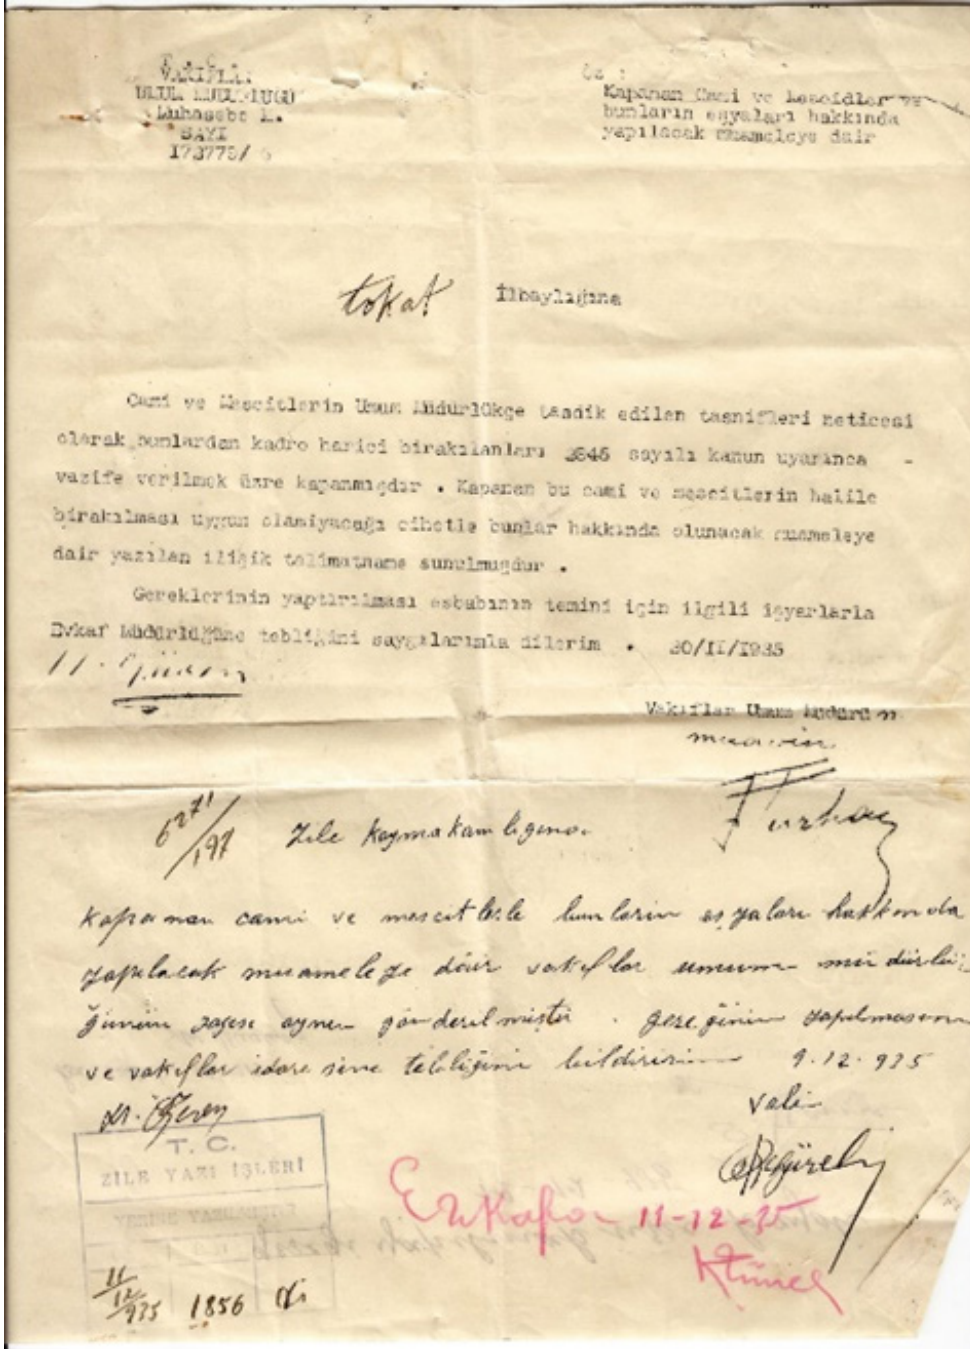 T. C.
VAKIFLAR
UMUM MÜDÜRLÜĞÜ
Muhasebe M.
SAYI
173775/6
Öz :
Kapanan Cami ve Mescidler ve
bunların eşyaları hakkında
yapılacak muameleye dair
tokat İlbaylığına
Cami ve Mescitlerin Umum Müdürlükçe tasdik edilen tasnifleri neticesi
olarak bunlardan kadro harici bırakılanları 2845 sayılı kanun uyarınca -
vazife verilmek üzre kapanmışdır . Kapanan bu cami ve mescitlerin halile
bırakılması uygun olamıyacağı cihetle bunlar hakkında olunacak muameleye
dair yazılan ilişik talimatname sunulmuşdur .
Gereklerinin yaptırılması esbabının temini için ilgili işyarlarla
Evkaf Müdürlüğüne tebliğini saygılarımla dilerim . 30/II/1935
Vakıflar Umum Müdürü n.
muavin
6271/197 Zile Kaymakamlığına.
Kapanan cami ve mescitlerle bunların eşyaları hakkında
yapılacak muameleye dair vakıflar umum müdürlü-
ğünün yazısı aynen gönderilmiştir. gereğinin yapılmasını
ve vakıflar idaresine tebliğini bildiririm 9.12.935
Vali
T. C.
ZİLE YAZI İŞLERİ
Evkafa 11-12-35
11/12/935 1856